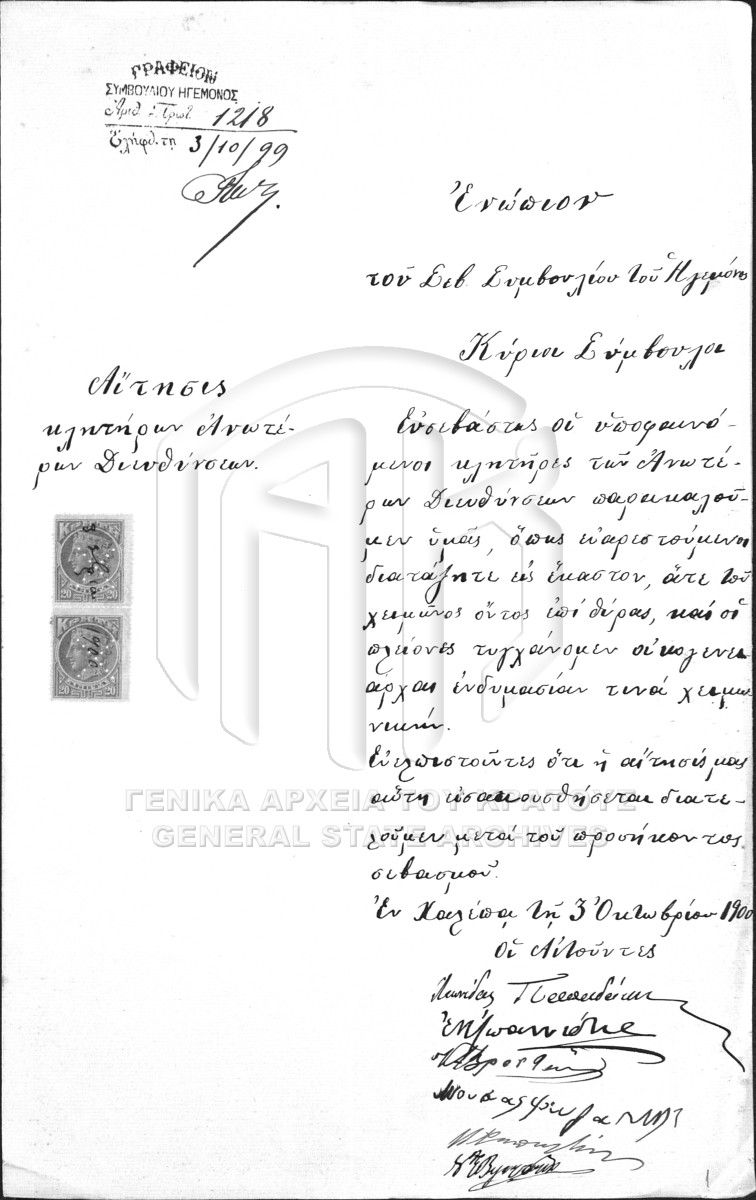 ΓΡΑΦΕΙΟΝ
ΣΥΜΒΟΥΛΙΟΥ ΗΓΕΜΟΝΟΣ
Ἀριθ. Πρωτ. 1218
Ἐλήφθ. τῇ 3/10/99
Ἐνώπιον
τοῦ Σεβ. Συμβουλίου τοῦ Ἡγεμόνος
Κύριοι Σύμβουλοι
Αἴτησις
κλητήρων Ἀνωτέ-
ρων Διευθύνσεων.
Εὐσεβάστως οἱ ὑποφαινό-
μενοι κλητῆρες τῶν Ἀνωτέ-
ρων Διευθύνσεων παρακαλοῦ-
μεν ὑμᾶς, ὅπως εὐαρεστούμενοι
διατάξητε εἰς ἕκαστον, ἅτε τοῦ
χειμῶνος ὄντος ἐπὶ θύρας, καὶ οἱ
πλείονες τυγχάνομεν οἰκογενει
άρχαι ἐνδυμασίαν τινὰ χειμε
νικήν.
Εὐελπιστοῦντες ὅτι ἡ αἴτησίς μας
αὕτη εἰσακουσθήσεται διατε-
λοῦμεν μετὰ τοῦ προσήκοντος
σεβασμοῦ.
Ἐν Χαλέπᾳ τῇ 3 Ὀκτωβρίου 1900
Οἱ Αἰτοῦντες
20 20
3
20 20
1900
ΓΕΝΙΚΑ ΑΡΧΕΙΑ ΤΟΥ ΚΡΑΤΟΥΣ
GENERAL STATE ARCHIVES
1